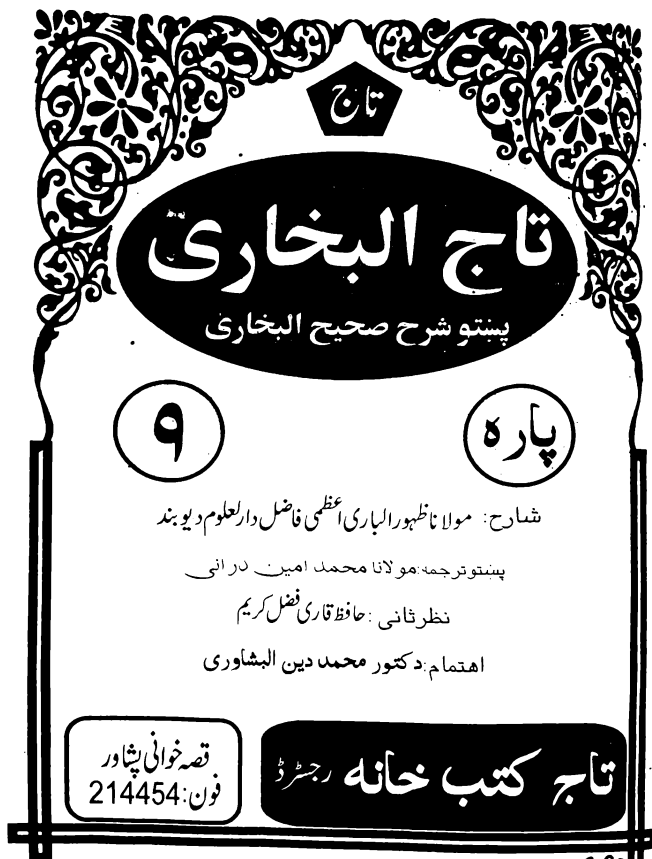 تاج
تاج البخاری
پښتو شرح صحیح البخاری
پاره ۹
شارح: مولانا ظہور الباری اعظمی فاضل دارلعلوم دیوبند
پښتو ترجمه: مولانا محمد امین درانی
نظرثانی: حافظ قاری فضل کریم
اهتمام: دکتور محمد دین البشاوری
تاج کتب خانه رجسٹرڈ
قصه خوانی پشاور
فون: 214454